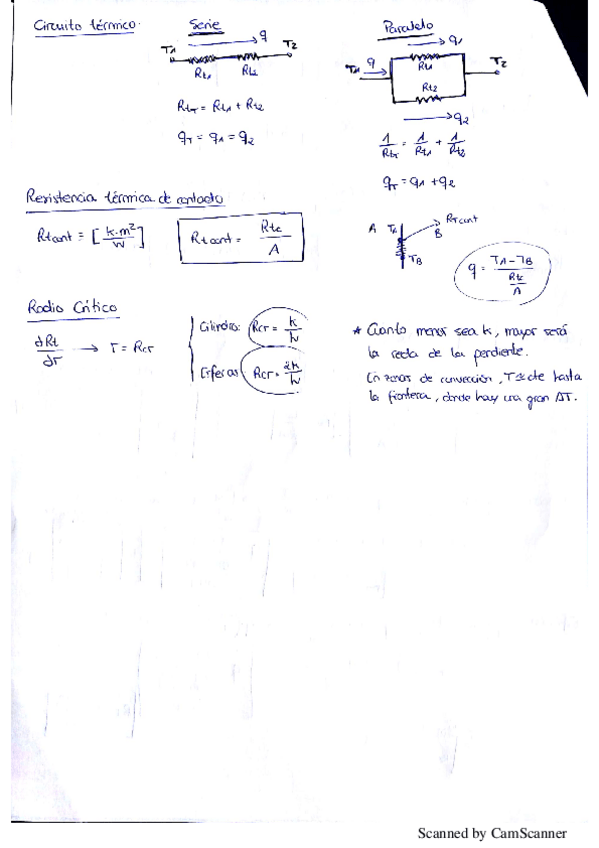 Circuito térmico.
Serie
q
T1
T2
Rt1
Rt2
RtT = Rt1 + Rt2
qT = q1 = q2
Paralelo
q1
T1
q
Rt1
T2
Rt2
q2
1/RtT = 1/Rt1 + 1/Rt2
qT = q1 + q2
Resistencia térmica de contacto
Rtcont = [k·m²/W]
Rtcont = Rtc/A
A
TA
RTcont
B
TB
q = (TA - TB)/(Rtc/A)
Radio Crítico
dRt/dr → r = Rcr
Cilindro: Rcr = k/h
Esferas: Rcr = 2k/h
* Cuanto menor sea k, mayor será
la recta de la pendiente.
En zonas de convección, T ≈ cte hasta
la frontera, donde hay una gran ΔT.
Scanned by CamScanner